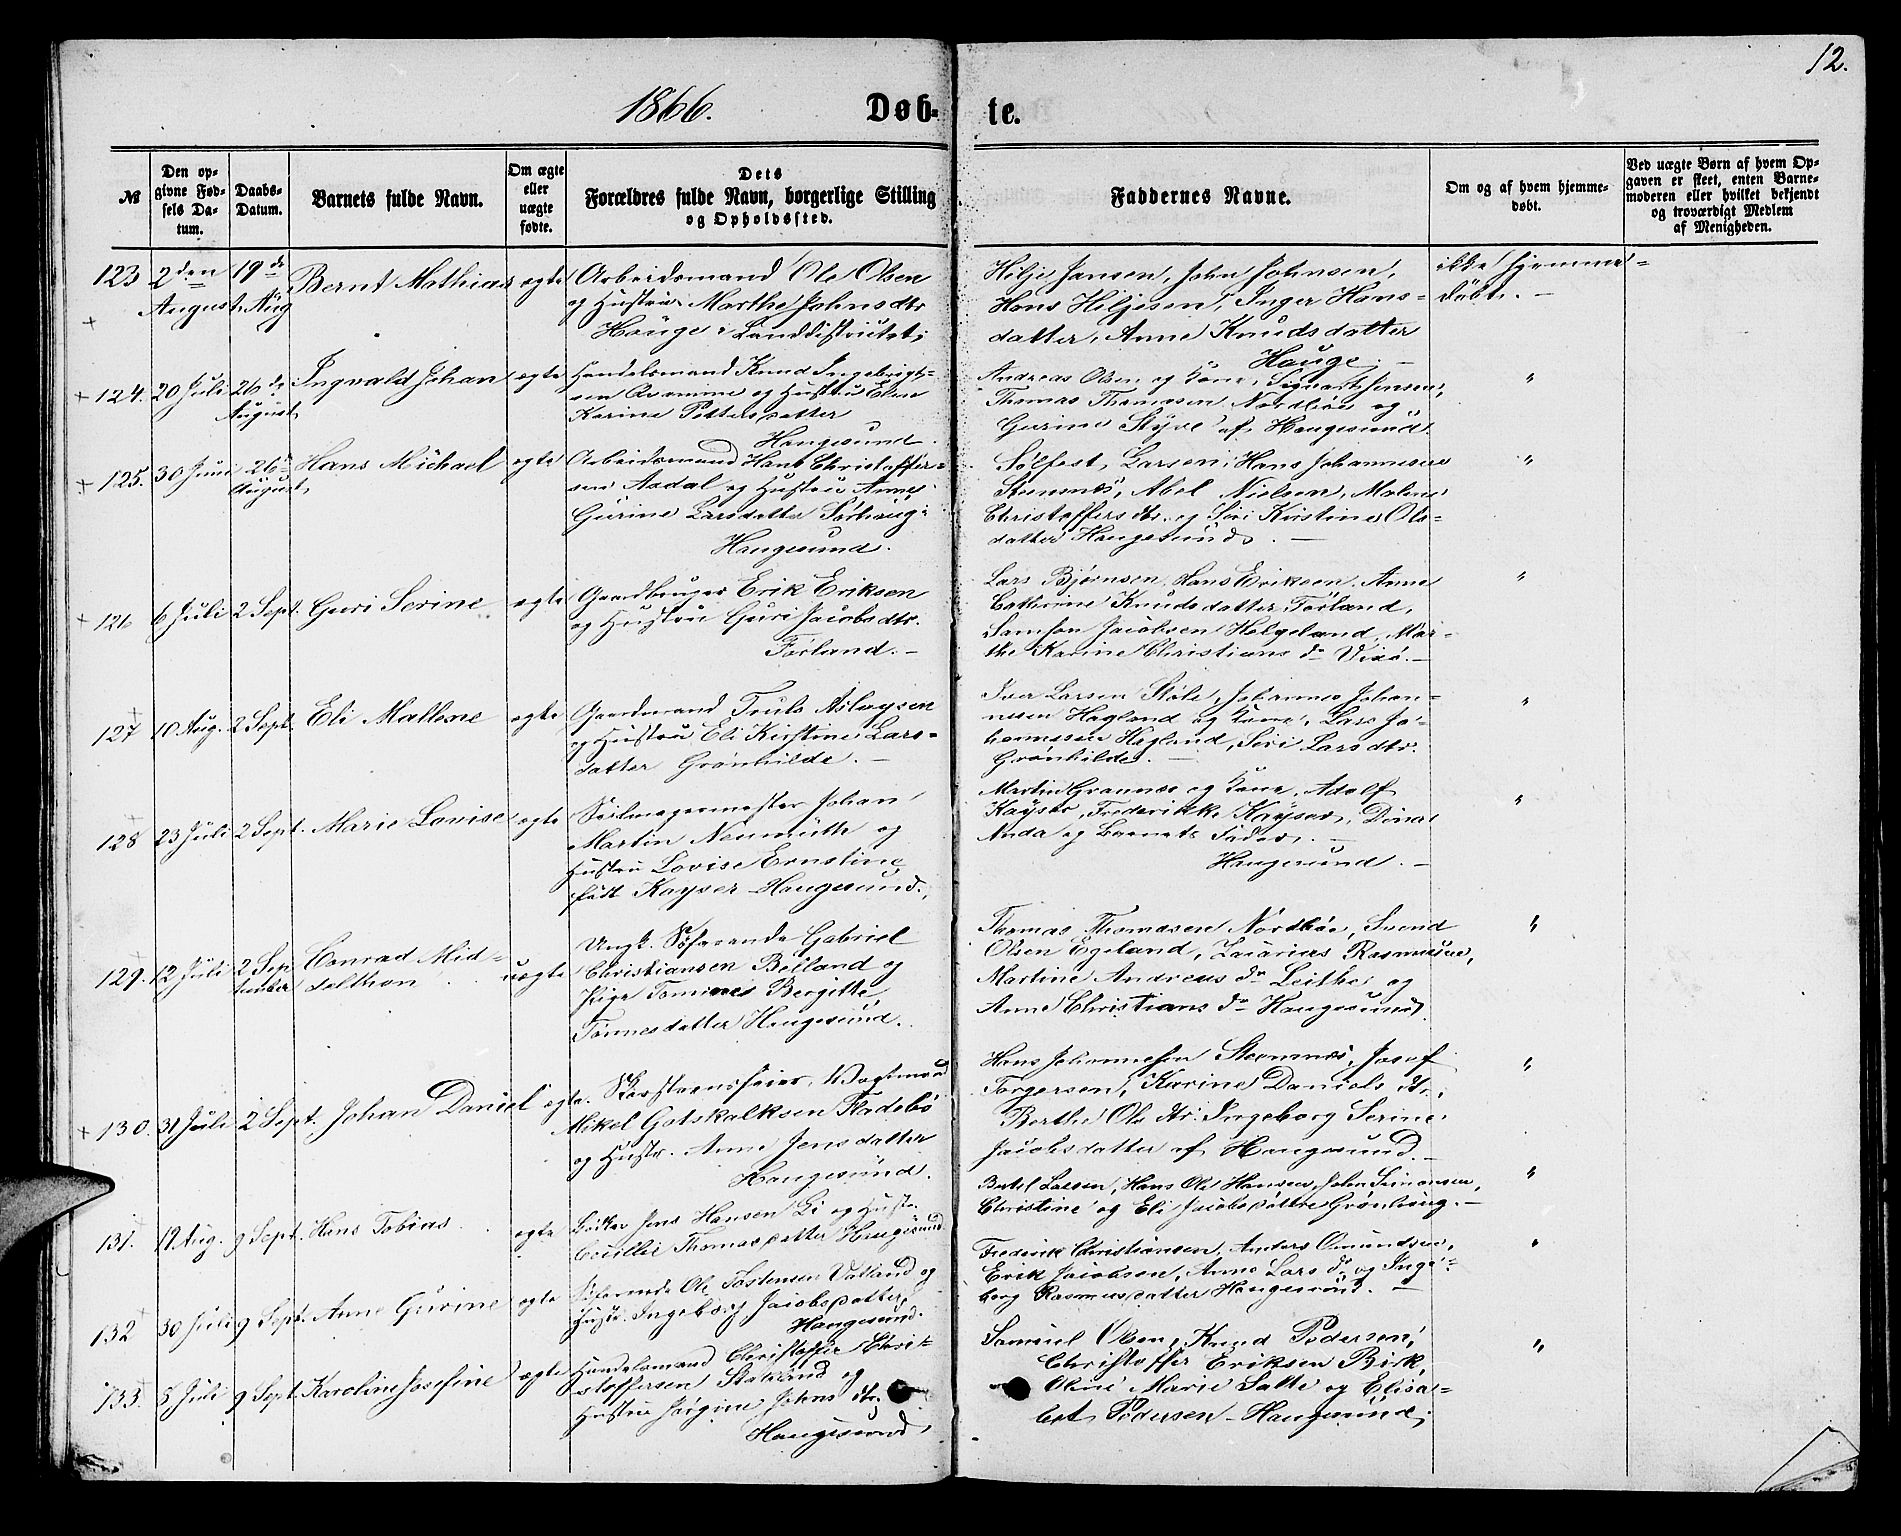 12.
1866. Døb- te.
№
Den op-
givne Fød-
sels Da-
tum.
Daabs-
Datum.
Barnets fulde Navn.
Om ægte
eller
uægte
fødte.
Dets
Forældres fulde Navn, borgerlige Stilling
og Opholdssted.
Faddernes Navne.
Om og af hvem hjemme-
døbt.
Ved uægte Børn af hvem Op-
gaven er skeet, enten Barne-
moderen eller hvilket bekjendt
og troværdigt Medlem
af Menigheden.
123 2den August 19de Aug Bernt Mathias ægte
Arbeidsmand Ole Olsen
og Hustru Marthe Johnsdtr
Hauge i Landdistriktet
Hilje Jansen, John Johnsen,
Hans Hiljesen, Inger Hans-
datter, Anne Knudsdatter
Hauge. —
ikke hjemme-
døbt. —
+ 124. 20 Juli 26de August Ingvald Johan ægte
Handelsmand Knud Ingebrigt-
sen og Hustru Elen
Karine Pettersdatter
Haugesund.
Andreas Olsen og Kone, Sigvart Jensen,
Thomas Thomasen Nordbøe og
Gurine Styve af Haugesund.
"
+ 125. 30 Juni 26de August Hans Michael ægte
Arbeidsmand Hans Christoffer-
sen Aadal og Hustru Anne
Gurine Larsdatter Sørhaug
Haugesund.
Sølfest Larsen, Hans Johannesen
Stemnes, Abel Nielsen, Malene
Christoffersdtr. og Siri Kirstine Ols-
datter Haugesund. —
"
+ 126 6 Juli 2 Sept. Guri Serine ægte
Gaardbruger Erik Eriksen
og Hustru Guri Jacobsdtr.
Førland. —
Lars Bjørnsen, Hans Eriksen, Anne
Cathrine Knudsdatter Førland,
Samson Jacobsen Helgeland, Mar-
the Karine Christiansdr Vixø. —
"
+ 127 10 Aug. 2 Sept. Eli Mallene ægte
Gaardmand Truls Aslaysen
og Hustru Eli Kirstine Lars-
datter Grønhilde. —
Iver Larsen Støle, Johannes Johan-
nssen Hagland og Kone, Lars Jo-
hannessen Hagland, Siri Larsdtr.
Grønhilde. —
"
+ 128 23 Juli 2 Sept. Marie Lovise ægte
Seilmagermester Johan
Martin Neumüth og
Hustru Lovise Ernstine
født Kayser Haugesund.
Martin Grannæs og Kone, Adolf
Kayser, Frederikke Kayser, Dina
Anda og Barnets Fader. —
Haugesund. —
"
+ 129. 12 Juli 2 September Conrad Mid-
delthon uægte
Ungk. Søfarende Gabriel
Christiansen Belland og
Pige Tomine Bergitte
Tønnesdatter Haugesund.
Thomas Thomasen Nordbøe, Svend
Olsen Egeland, Zacarias Rasmusen,
Martine Andreasdr Leithe og
Anne Christiansdr Haugesund
"
+ 130. 31 Juli 2 Sept. Johan Daniel ægte.
Skorstensfeier, Vægtmand
Mikel Gotskalksen Fladebø
og Hustr. Anne Jensdatter
Haugesund.
Hans Johannesen Stemnes, Josef
Torgersen, Karine Danielsdtr.,
Berthe Olsdtr. Ingeborg Serine
Jacobsdatter af Haugesund. —
"
131. 19 Aug. 9 Sept. Hans Tobias ægte
Jens Hansen Li og Hustr.
Cecilie Thomasdatter Haugesund
Bertel Larsen, Hans Ole Hansen, John Simonsen,
Christine og Eli Jacobsdøttre Grønhaug. —
"
132 30 Juli 9 Sept. Anne Gurine ægte
Søfarende Ole Tostensen Vatland og
Hustr. Ingeborg Jacobsdatter
Haugesund.
Frederik Christiansen, Anders Omundsen,
Erik Jacobsen, Anne Larsdr og Inge-
borg Rasmusdatter Haugesund. —
"
133. 8 Juli 9 Sept. Karoline Josefine ægte
Handelsmand Christoffer Chri-
stoffersen Stakland og
Hustru Jørgine Johnsdtr.
Haugesund
Samuel Olsen, Knud Pedersen,
Christoffer Eriksen Birk,
Oline Marie Salte og Elisa-
bet Pedersen Haugesund
"